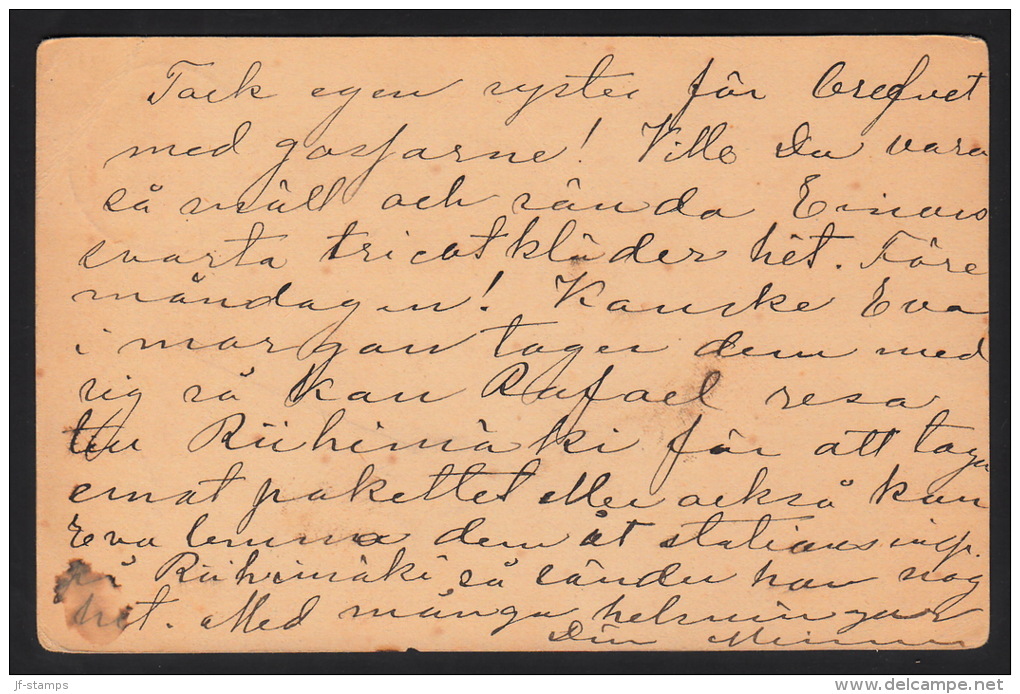 Tack egen syster för brefvet
med gossarne! Ville Du vara
så snäll och sända Einars
svarta tricotkläder hit. Före
måndagen! Kanske Eva
i morgon tager dem med
sig så kan Rafael resa
till Riihimäki för att taga
emot pakettet eller också kan
Eva lemna dem åt stations insp.
på Riihimäki så sänder han nog
hit. Med många helsningar
Din
jf-stamps
www.delcampe.net